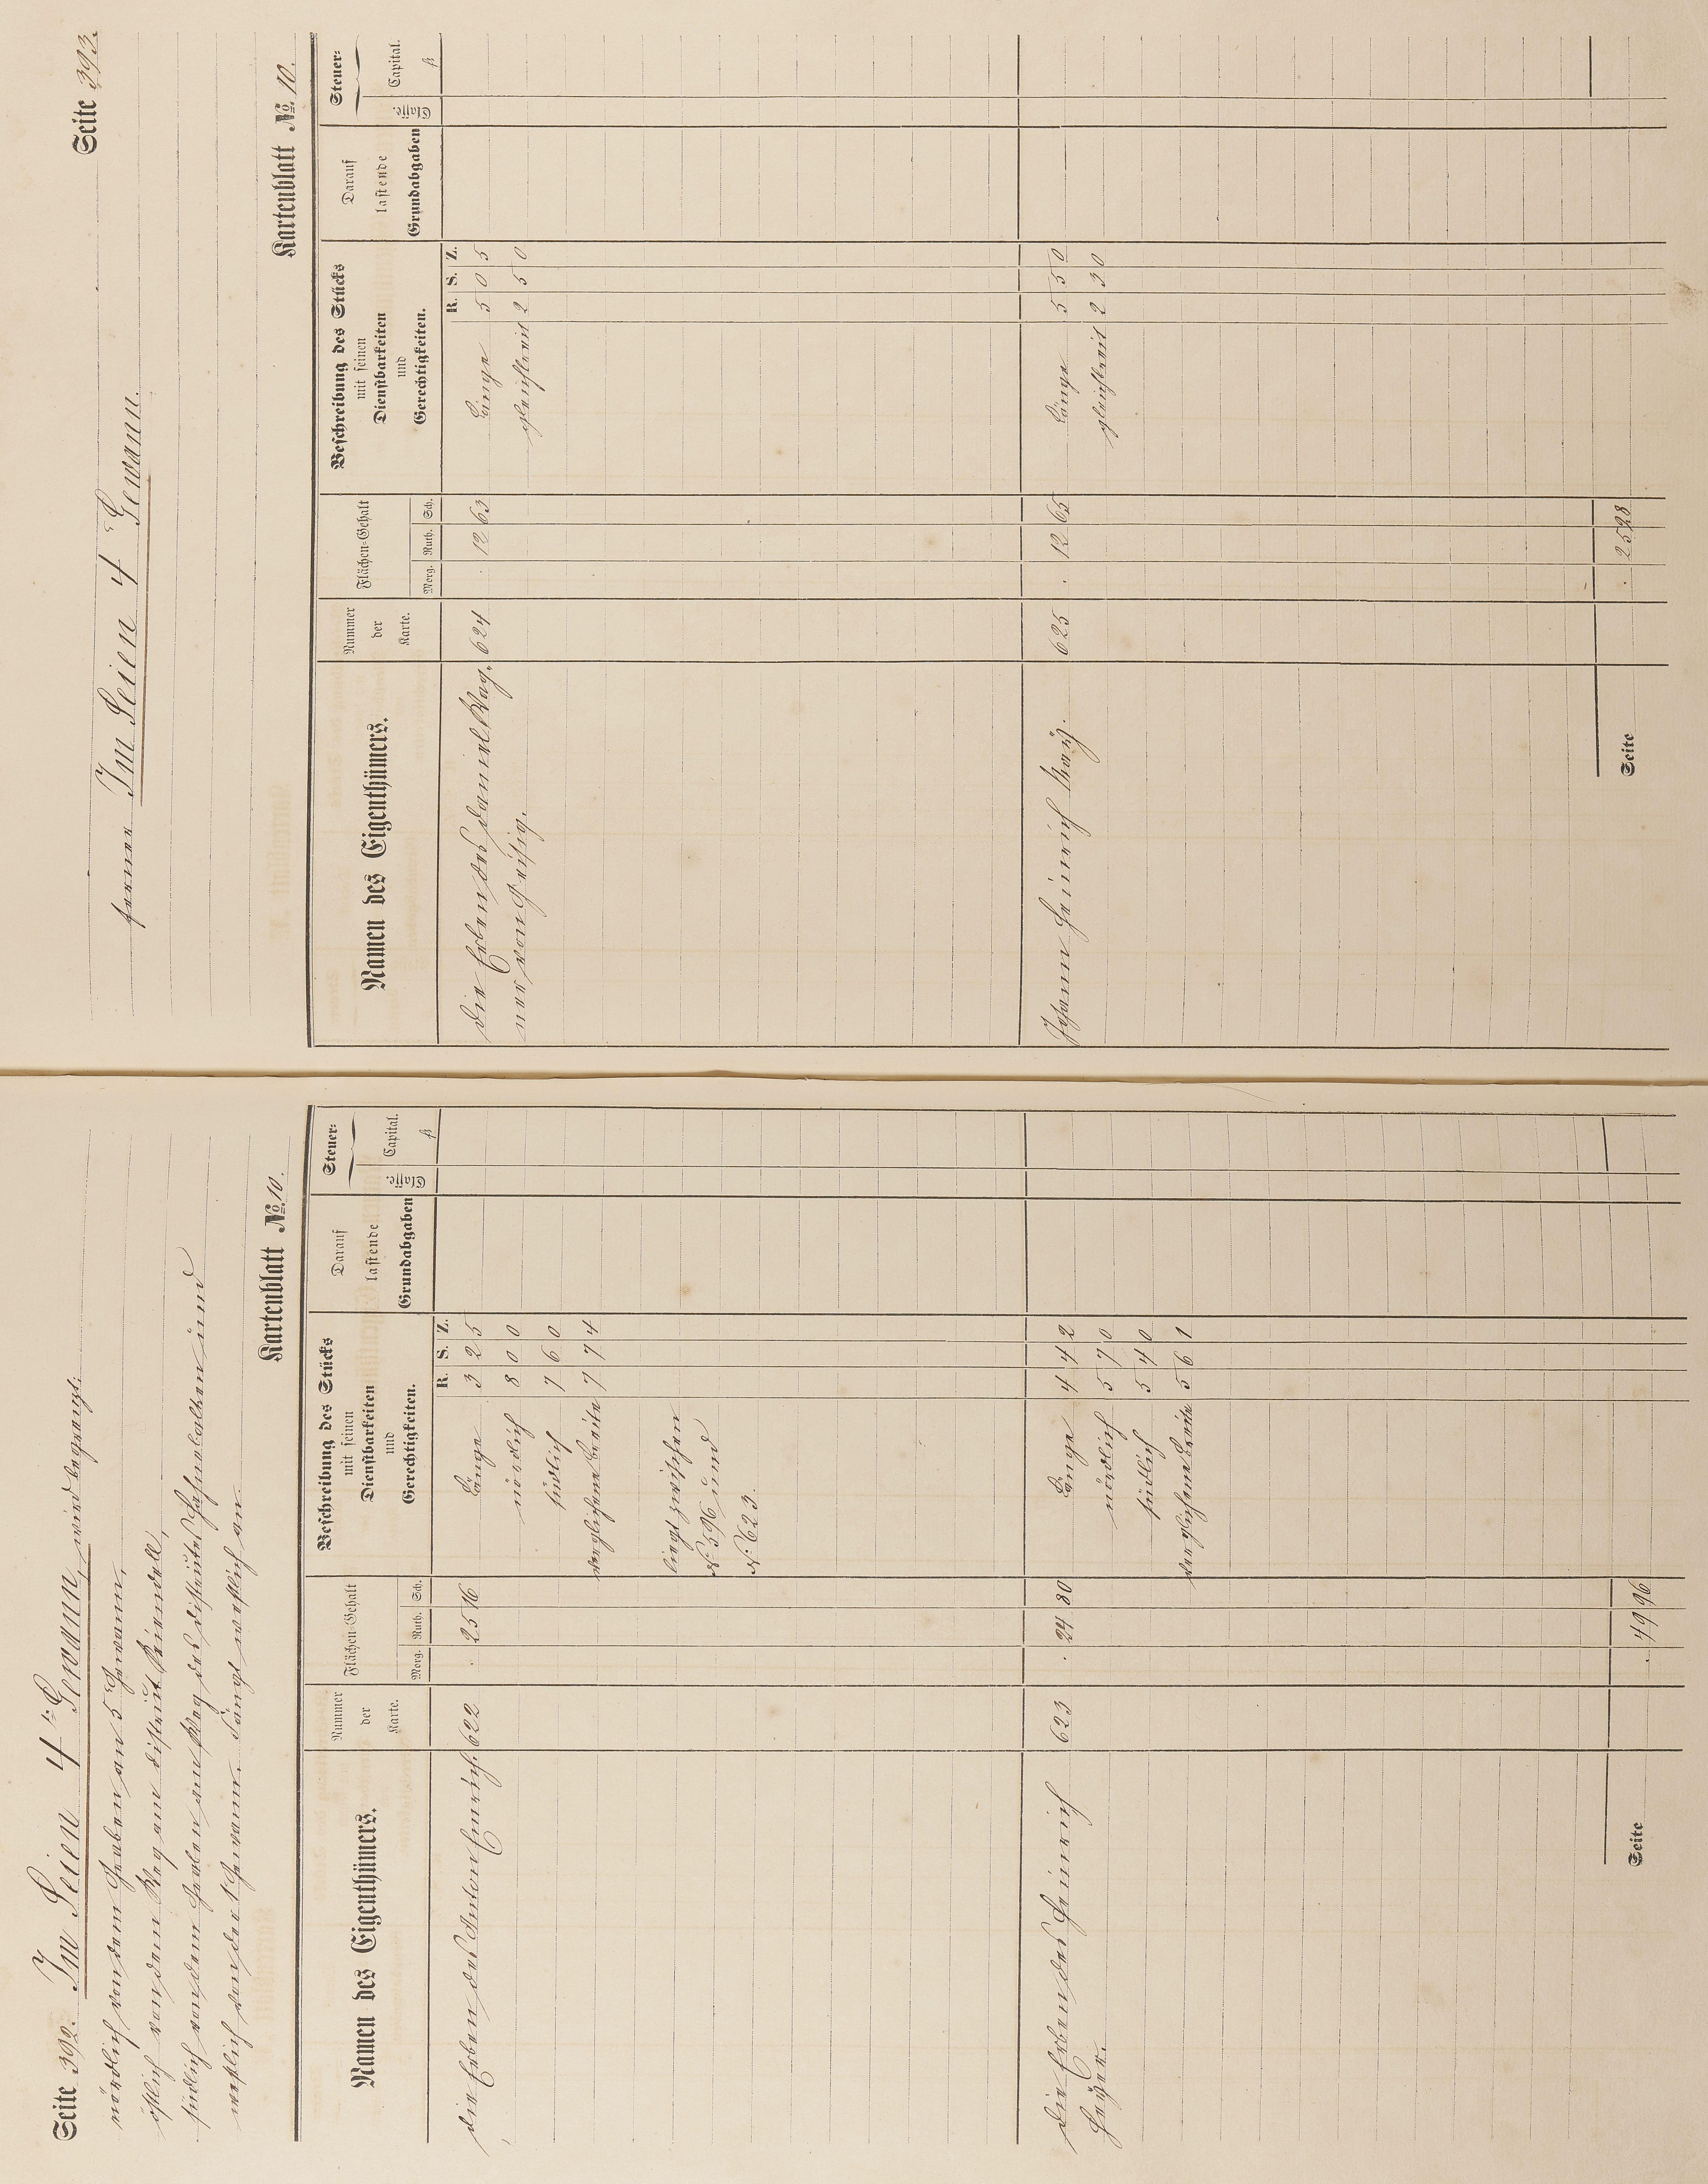 Seite 392. Im Seien 4te Gewann, wird begrenzt:
nördlich von dem Graben an 5r Gewann,
östlich von dem Weg am District
südlich von dem Graben am Weg des Districtes und
westlich von der 1 Gewann. Fängt westlich an.
Kartenblatt No. 10.
Namen des Eigenthümers.
Nummer der Karte.
Flächen-Gehalt
Morg. Ruth. Sch.
Beschreibung des Stücks
mit seinen
Dienstbarkeiten
und
Gerechtigkeiten.
Darauf
lastende
Grundabgaben
Steuer-
Classe. Capital.
fl
R. S. Z.
die Erben des Anton Emrich. 622 . 25 16 Länge 3 2 5
nördlich 8 0 0
südlich 7 6 0
verglichene Breite 7 7 4
liegt zwischen
N: 596 und
N: 623.
die Erben des Heinrich 623 . 24 80 Länge 4 4 2
nördlich 5 7 0
südlich 5 4 0
verglichene Breite 5 6 1
Seite . 49 96
Seite 393.
ferner Im Seien 4te Gewann.
Kartenblatt No. 10.
Namen des Eigenthümers.
Nummer
der
Karte.
Flächen-Gehalt
Morg. Ruth. Sch.
Beschreibung des Stücks
mit seinen
Dienstbarkeiten
und
Gerechtigkeiten.
Darauf
lastende
Grundabgaben
Steuer-
Classe. Capital.
fl
R. S. Z.
die Erben des Daniel Wag- 624 . 12 63 Länge 5 0 5
ner von gleichbreit 2 5 0
Johann Heinrich 625 . 12 65 Länge 5 5 0
gleichbreit 2 3 0
Seite . 25 28